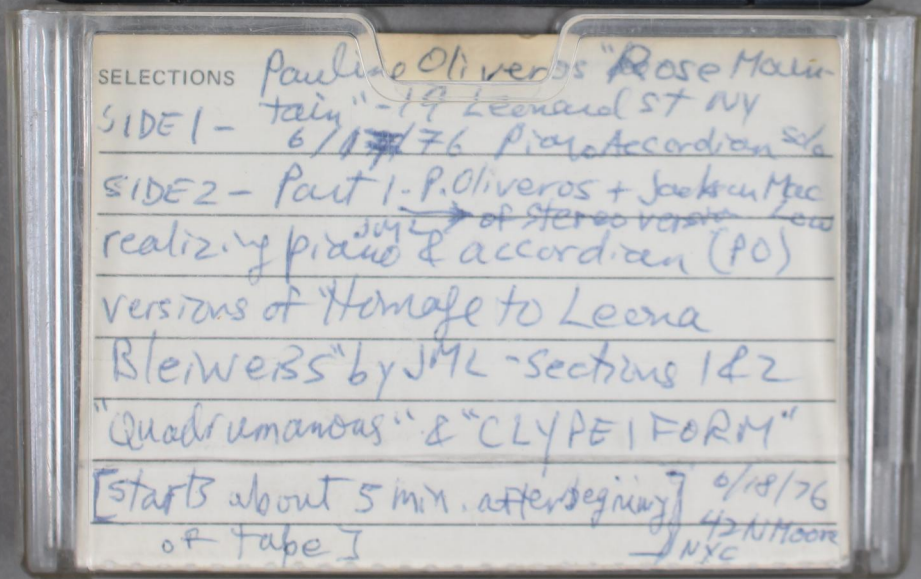 SELECTIONS Pauline Oliveros "Rose Moun-
tain" - 19 Leonard St NY
SIDE 1 - 6/17/76 Piano Accordian solo
SIDE 2 - Part 1 - P. Oliveros + Jackson Mac Low
→ of stereo version
realizing piano JML & accordian (PO)
versions of "Homage to Leona
Bleiweiss" by JML - Sections 1 & 2
"Quadrumanous" & "CLYPEIFORM"
[starts about 5 min. after begining] 6/18/76
of tape] 42 N Moore
NYC